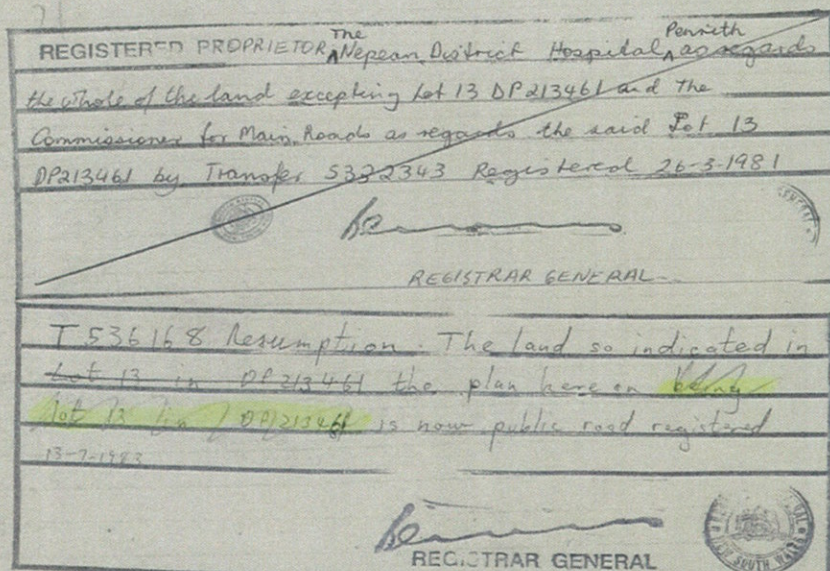 REGISTERED PROPRIETOR The Nepean District Hospital Penrith as regards
the whole of the land excepting Lot 13 DP213461 and the
Commissioner for Main Roads as regards the said Lot 13
DP213461 by Transfer 5322343 Registered 26-3-1981
REGISTRAR GENERAL
T536168 Resumption. The land so indicated in
Lot 13 in DP213461 the plan here on being
lot 13 in DP213461 is now public road registered
13-7-1983
REGISTRAR GENERAL
SOUTH WALES